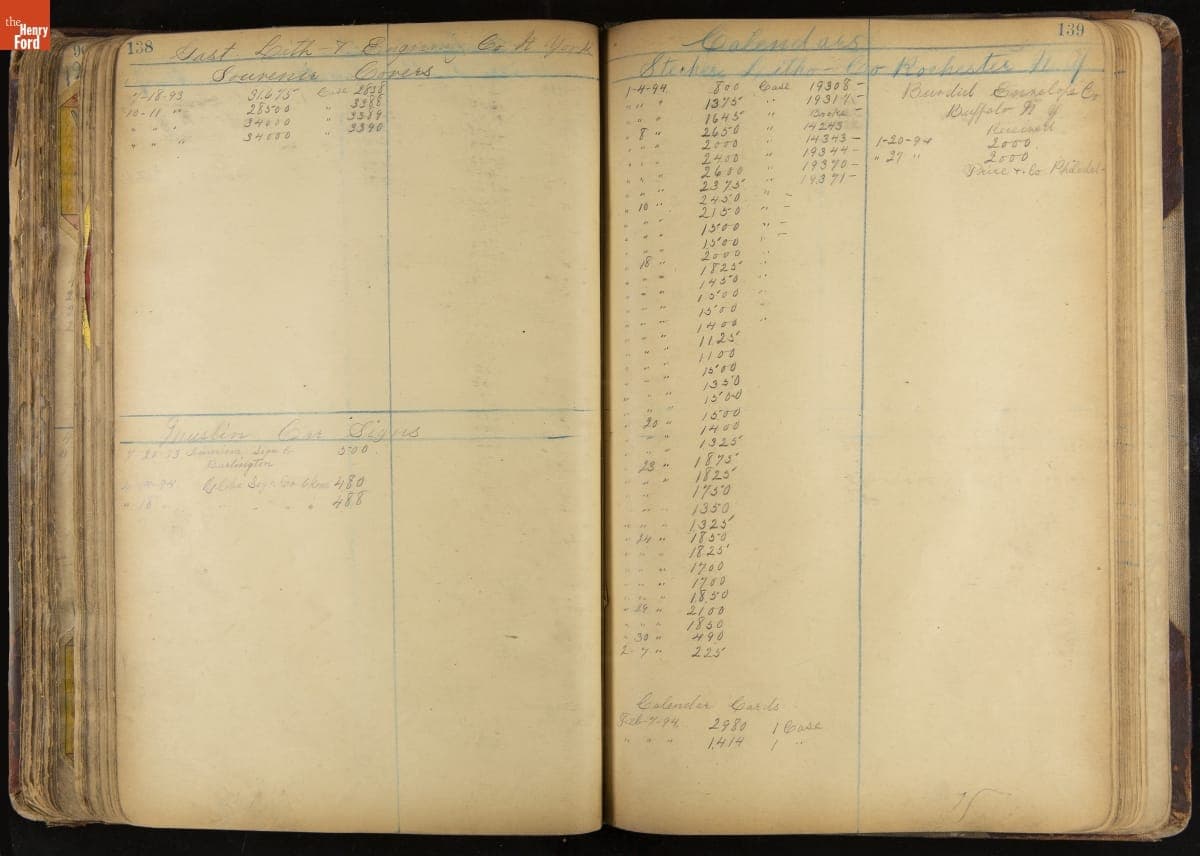 the
Henry
Ford
138
Gast Lith & Engraving Co N. York
Souvenir Covers
7-18-93 31.675 Case 2838
10-11 " 28500 " 3388
" " " 34000 " 3389
" " " 34000 " 3390
Muslin Car Signs
20-93 Sign Co 500
Burlington
480
" 18 " " " 488
139
Calendars
Stecher Litho Co Rochester N. Y
1-4-94 800 Case 19308 -
" " " 1375 " 19317 -
" " 1645 " Broke -
" 8 " 2650 " 14243
" " " 2000 " 14343 -
" " 2400 " 19344 -
" " 2600 " 19370 -
" " 2375 " 19371 -
" " 2450 " -
" 10 " 2150 " -
" " 1500 " -
" " 1500 " -
" " 2000 "
" 18 " 1825 "
" " 1450 "
" " 1500 "
" " 1500 "
" " 1400 "
" " 1125
" " 1100
" " 1500
" " 1350
" " 1500
" " 1500
" 20 " 1400
" " 1325
" 23 " 1875
" " 1825
" " 1750
" " 1350
" " 1325
" 24 " 1850
" " 1825
" " 1700
" " 1700
" " 1850
" 29 " 2100
" " 1850
" 30 " 490
2-7 " 225
Envelope Co
Buffalo N Y
Received
1-20-94 2000
" 27 " 2000
Price & Co Philadel-
Calendar Cards
Feb-7-94 2980 1 Case
" " " 1414 1 "